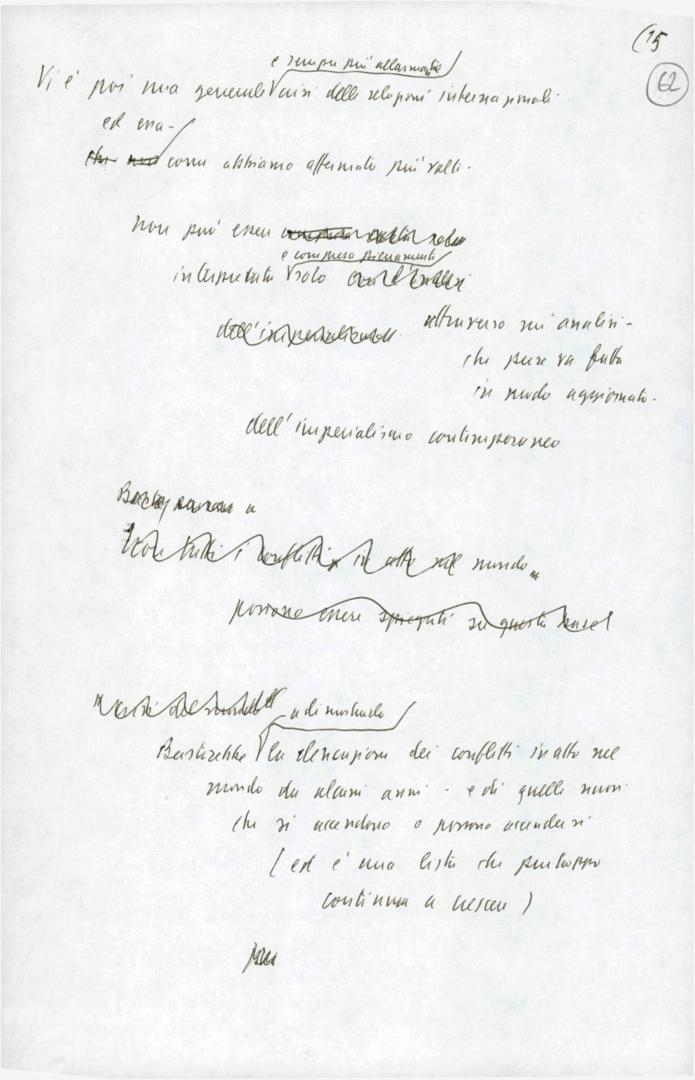 (15
62
e sempre più allarmante
Vi è poi una generale crisi delle relazioni internazionali
ed essa -
che non come abbiamo affermato più volte -
non può essere
e compresa pienamente
interpretata solo
dell'imperialismo attraverso un'analisi -
che pure va fatta
in modo aggiornato -
dell'imperialismo contemporaneo
Non tutti i conflitti in atto nel mondo
possono essere spiegati su questa base
a dimostrarlo
Basterebbe la elencazione dei conflitti in atto nel
mondo da alcuni anni - e di quelli nuovi
che si accendono o possono accendersi
(ed è una lista che purtroppo
continua a crescere)